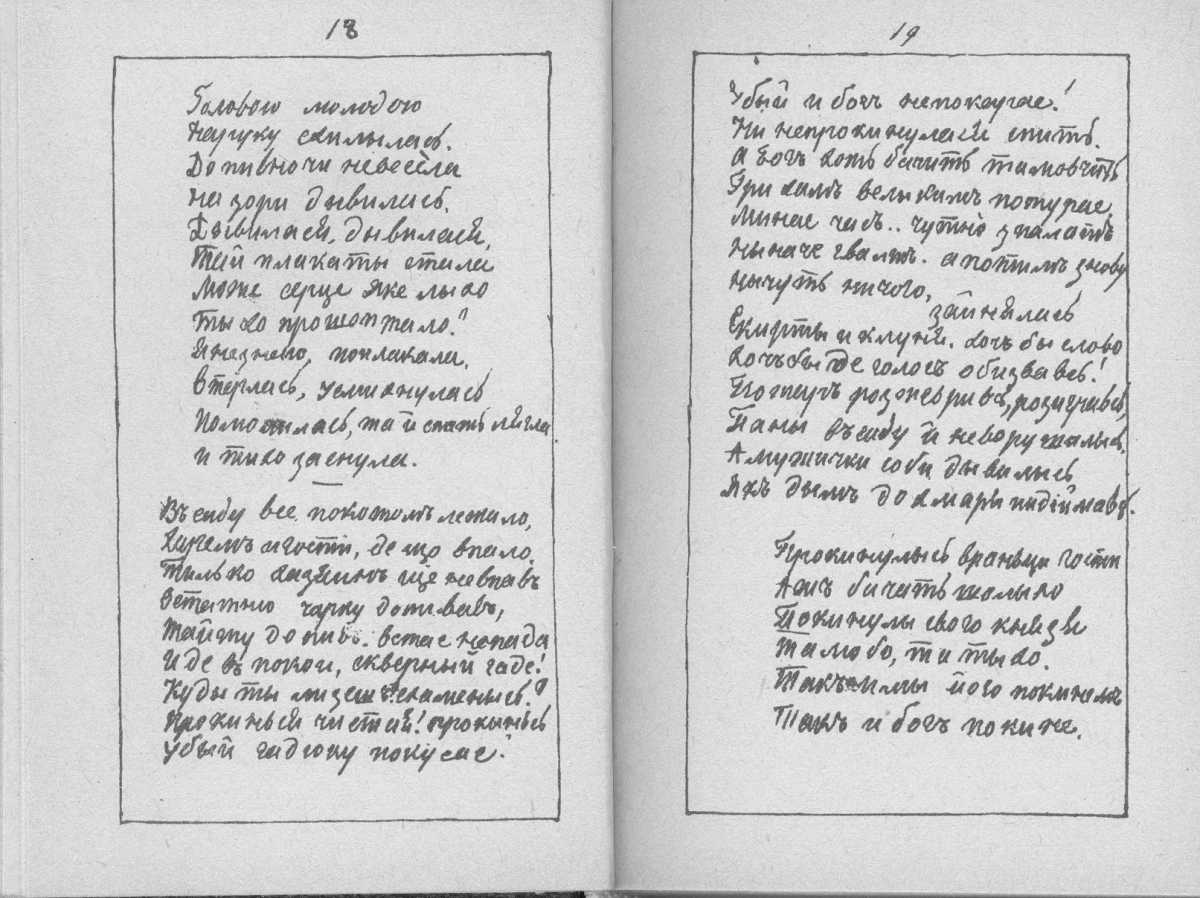 18
Головою молодою
На руку схилылась.
До пивночи невесела
На зори дывилась.
Дывиласьй, дывиласьй,
Тай плакаты стала
Може серце яке лыхо
Тыхо прошоптало?
Й незнево, поплакала,
Втерлась, усмихнулась
Помолилась, та й спать лягла
и тихо заснула.
Въ саду все покотомъ лежало,
Пляшкы и гости, де що впало.
Тилько хазяинъ ще невпавъ
Остатню чарку допивавъ,
Тайту допивъ. встае непада
Иде въ покои, скверный гаде!
Куды ты лизеш? схаменысь?
Прокинься чистая! прокинься
Убый гадюку покусае!
19
Убый и богъ непокарае!
Ни непрокинуласьй спить.
А богъ хоть бачить тамовчить
Грихамъ велыкимъ потурае.
Минае часъ.. чутно з палатъ
Ныначе гвалтъ. а потимъ знову
нычуть ничого,
зайнялысь
Скирты и клуня. хочъ бы слово
Хочъ бы де голосъ обизвавсь!
Пожаръ розжеврився, розигрався,
Паны въ саду й неворушалысь,
А мужички соби дывылысь
Якъ дымъ до хмары пидіймавсь.
Прокинулысь враньци гости
Ажъ бачать шалыхо
Покинулы свого князя
Та любо, та тыхо.
Такъ и мы його покинемъ
Такъ и богъ покине.